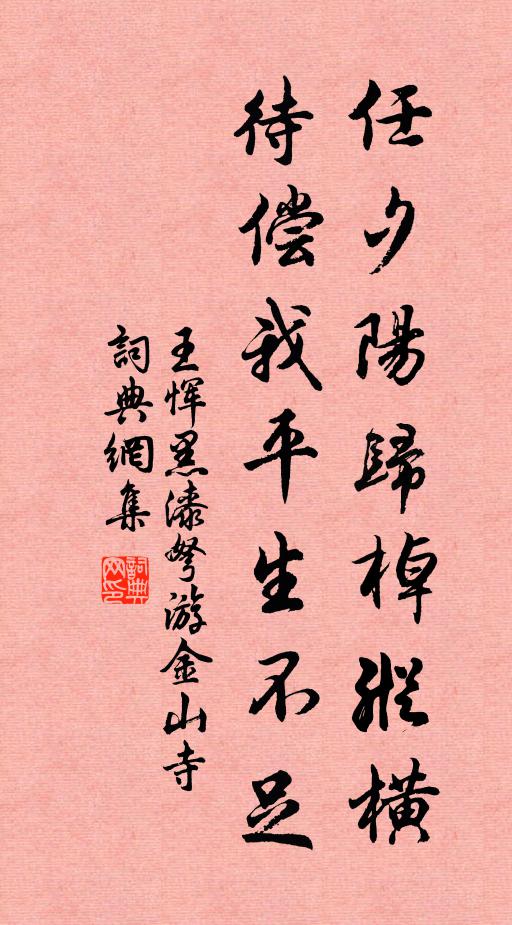 任夕陽歸棹縱橫
待偿我平生不足
王恽黑漆弩游金山寺
詞典網集
詞典網印